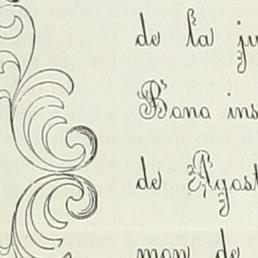 de la ju
Bona ins
de Agost
mon de